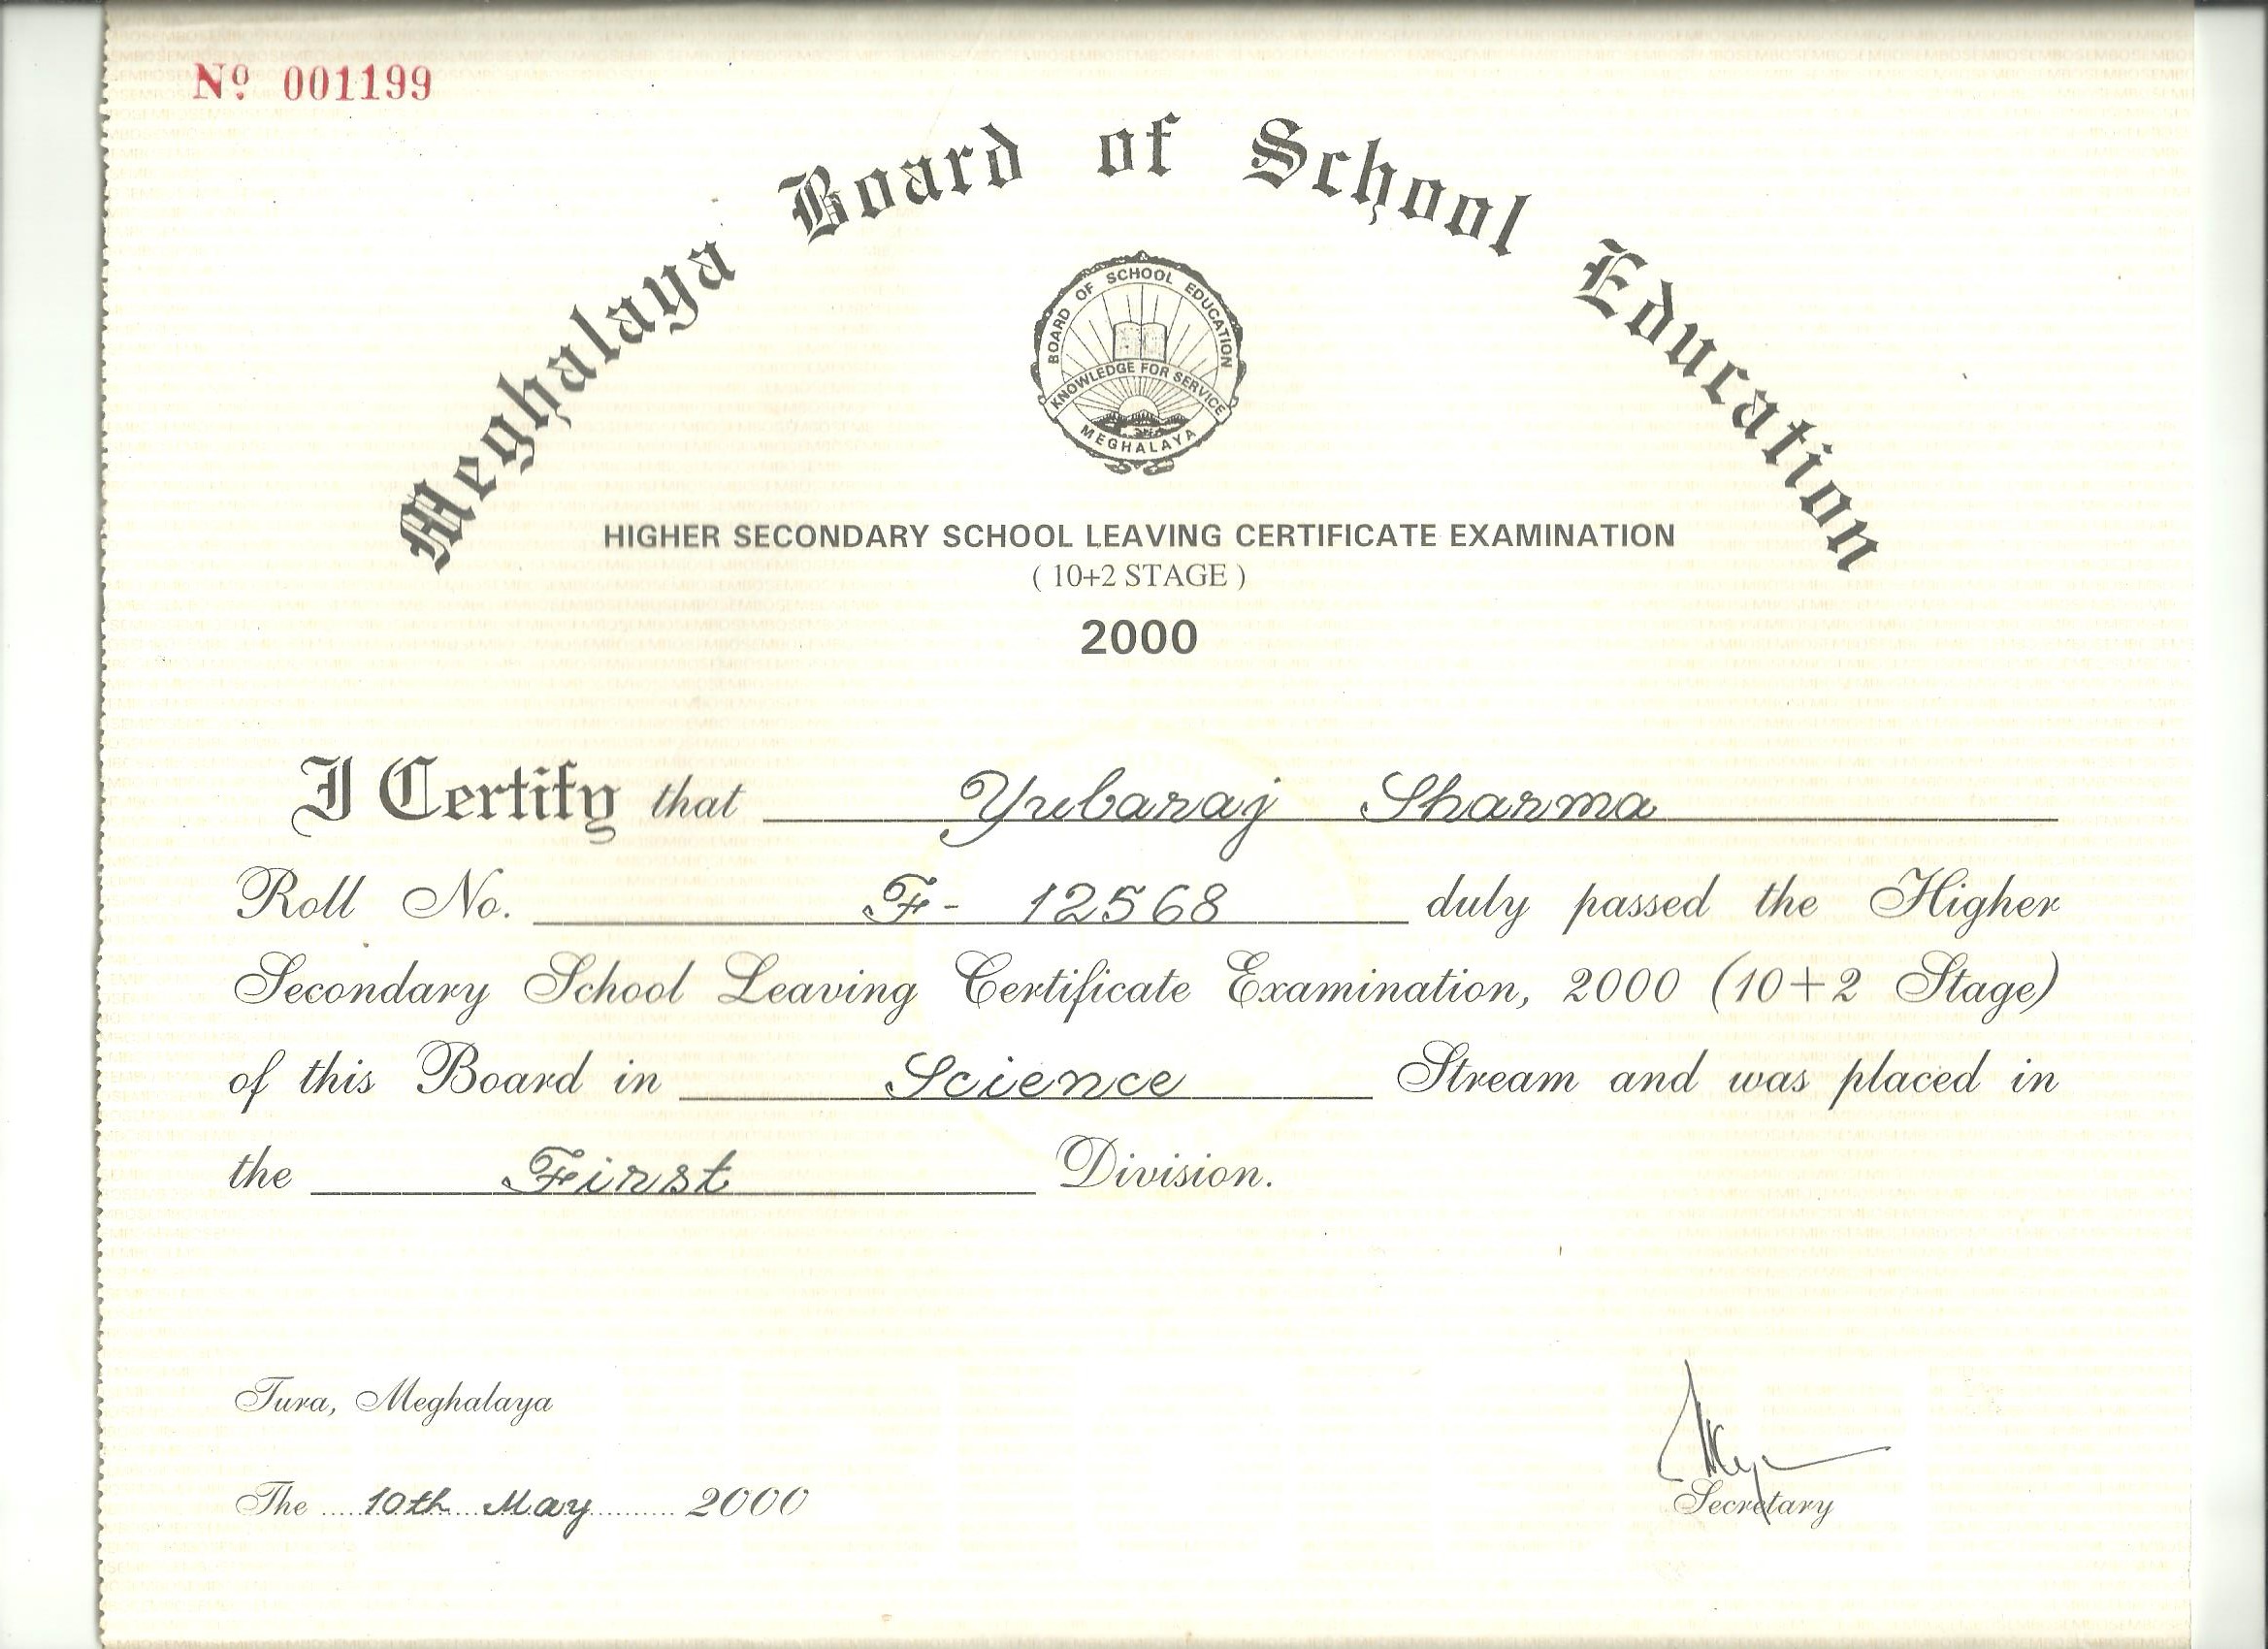 Nº 001199
Meghalaya Board of School Education
BOARD OF SCHOOL EDUCATION
KNOWLEDGE FOR SERVICE
MEGHALAYA
HIGHER SECONDARY SCHOOL LEAVING CERTIFICATE EXAMINATION
( 10+2 STAGE )
2000
I Certify that Yubaraj Sharma
Roll No. F- 12568 duly passed the Higher
Secondary School Leaving Certificate Examination, 2000 (10+2 Stage)
of this Board in Science Stream and was placed in
the First Division.
Tura, Meghalaya
The 10th May 2000
Secretary